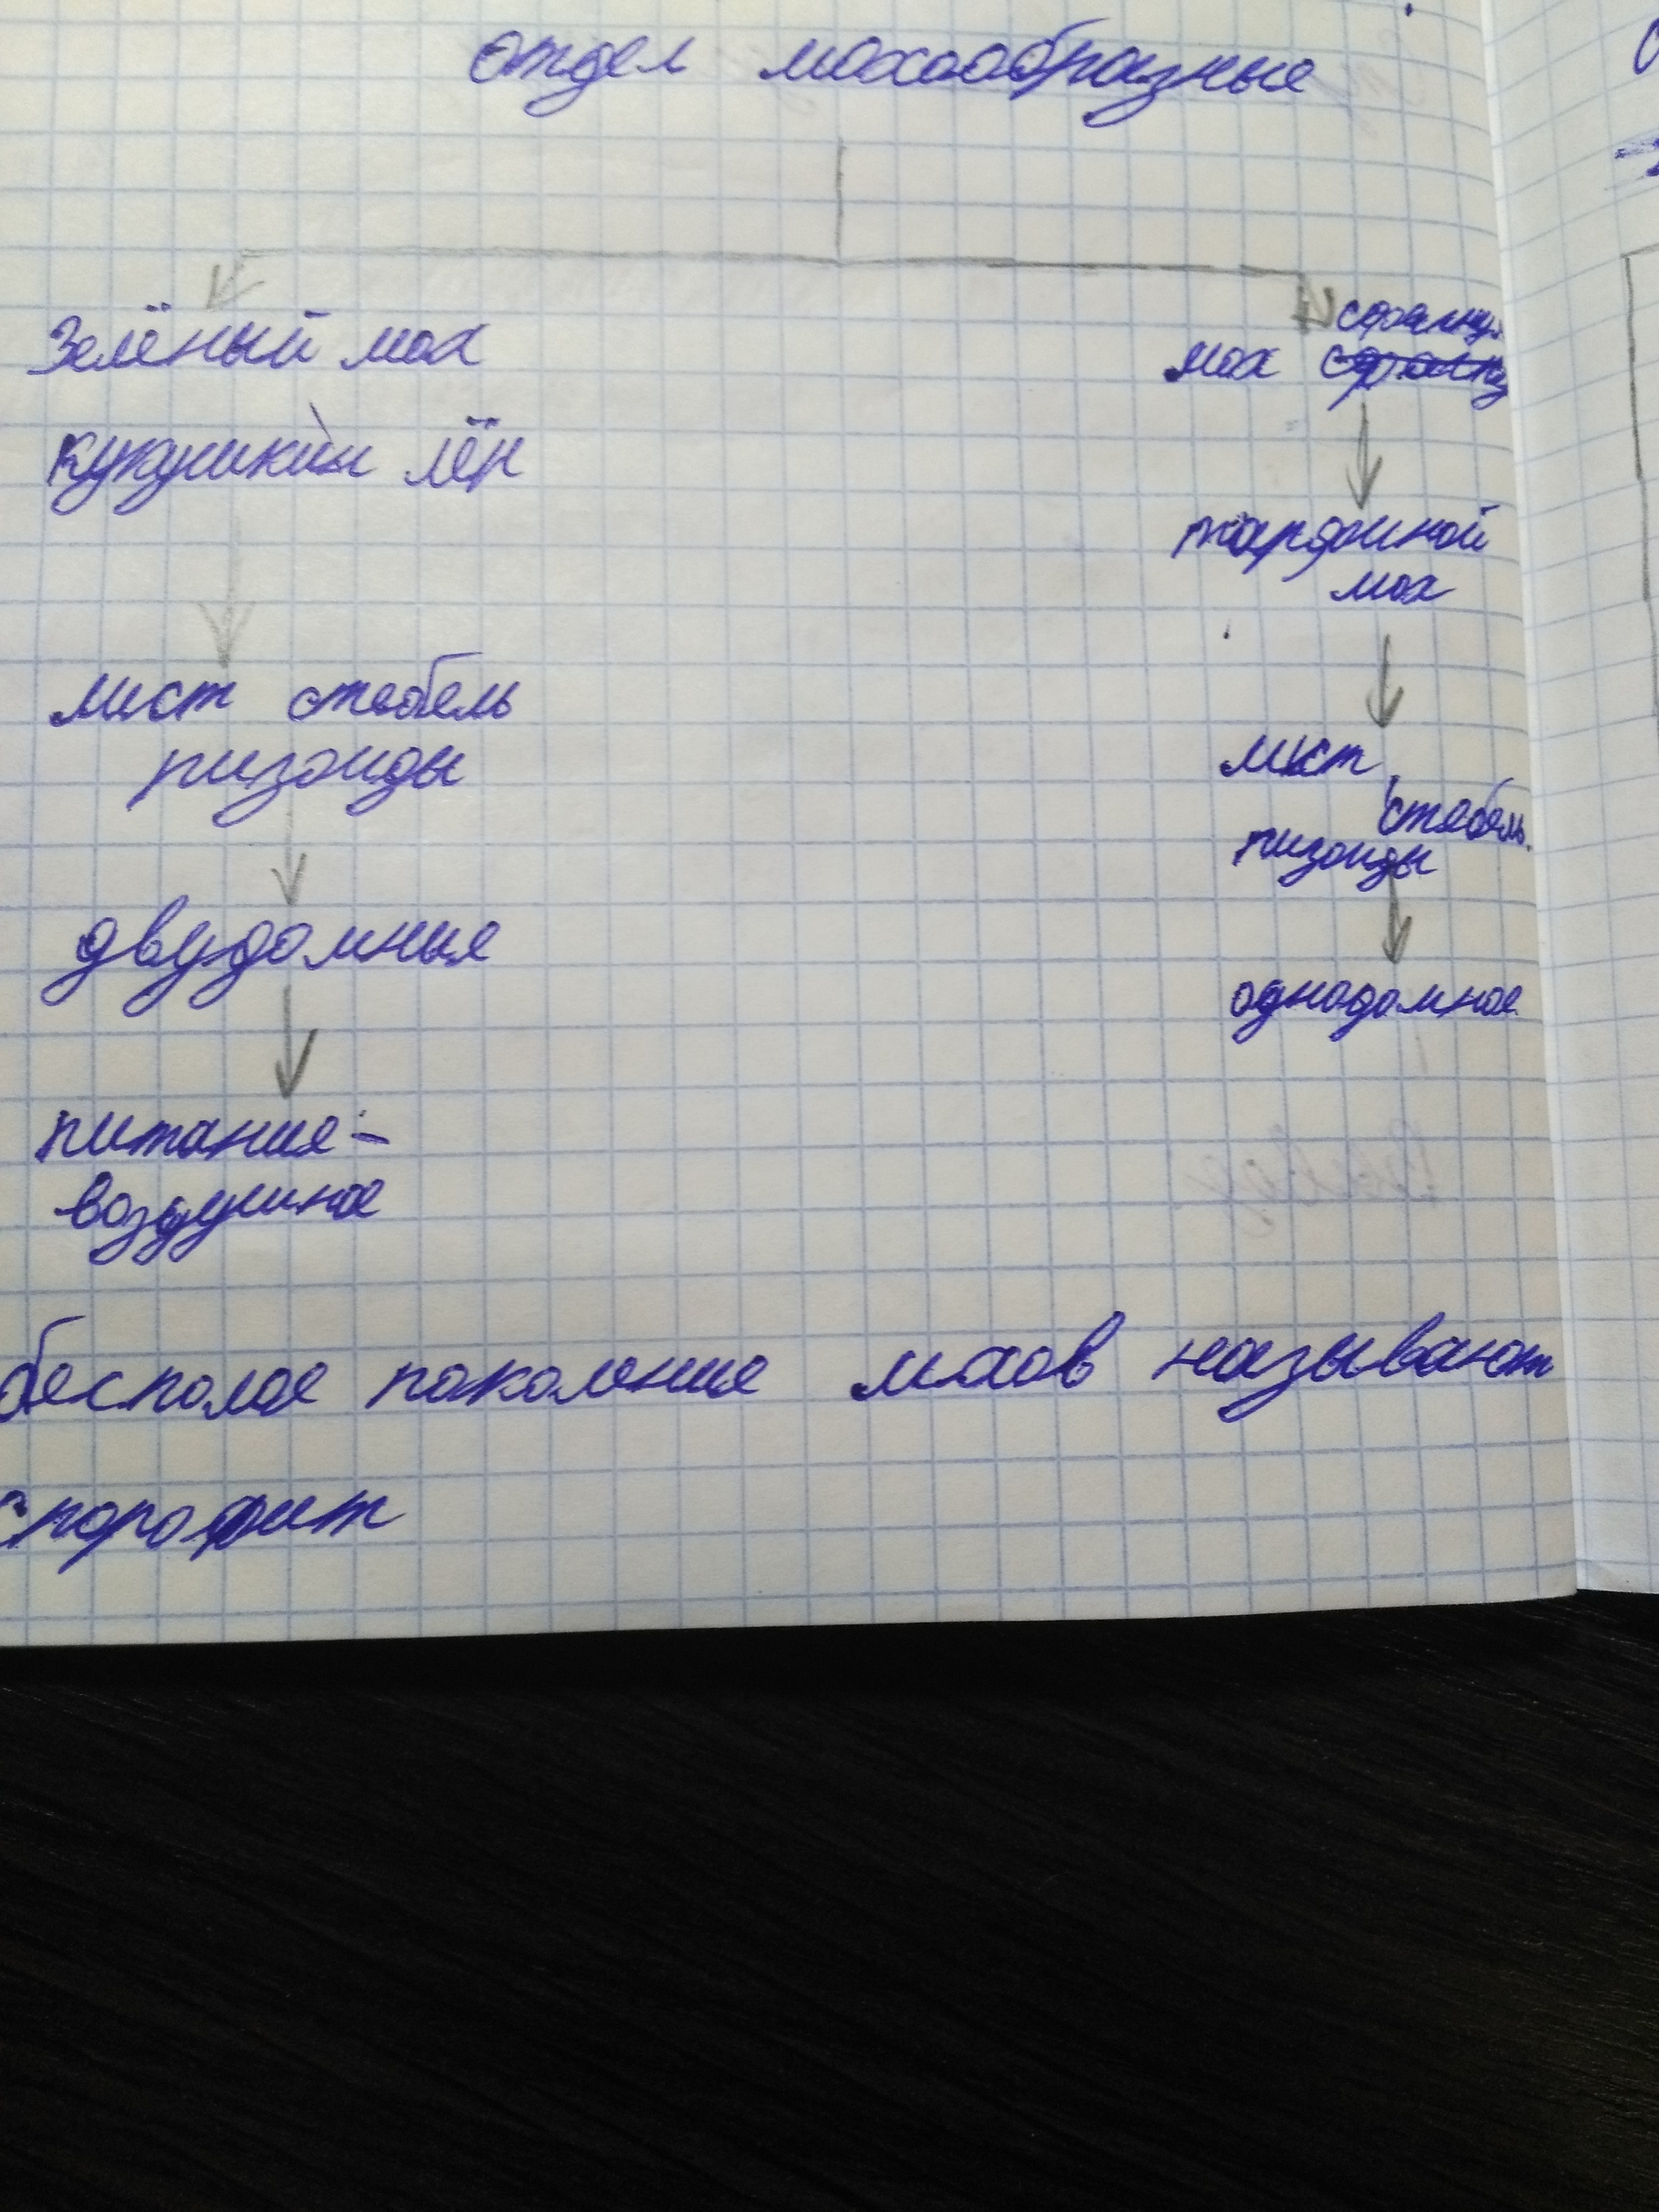 отдел мохообразные
Зелёный мох
кукушкин лён
лист стебель
ризоиды
двудомные
питание-
воздушное
мох
торфяной
мох
лист,
стебель.
ризоиды
однодомное
бесполое поколение мхов называют
спорофит